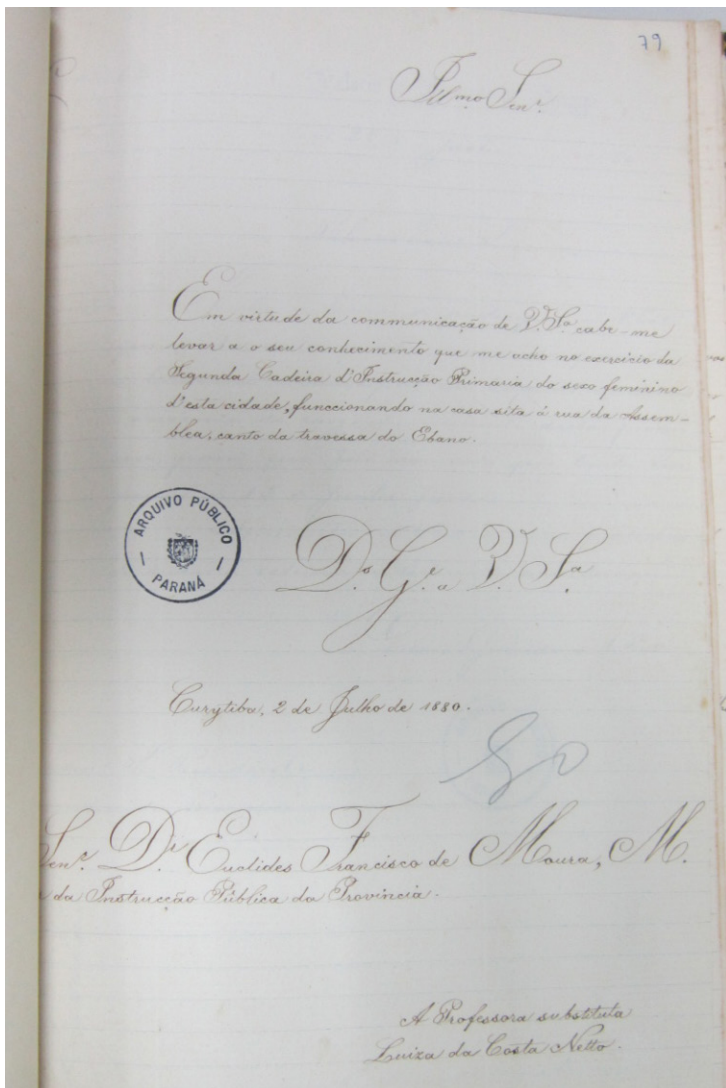 79
Illmo. Senr.
Em virtude da communicação de V. Sa. cabe-me
levar a o seu conhecimento que me acho no exercicio da
Segunda Cadeira d'Instrucção Primaria do sexo feminino
d'esta cidade, funccionando na casa sita á rua da Assem-
blea, canto da travessa do Ebano.
ARQUIVO PÚBLICO
PARANÁ
Ds. Ge. a V. Sa.
Curytiba, 2 de Julho de 1880.
Senr. Dr. Euclides Francisco de Moura, M.
da Instrucção Pública da Provincia.
A Professora substituta
Luiza da Costa Netto.